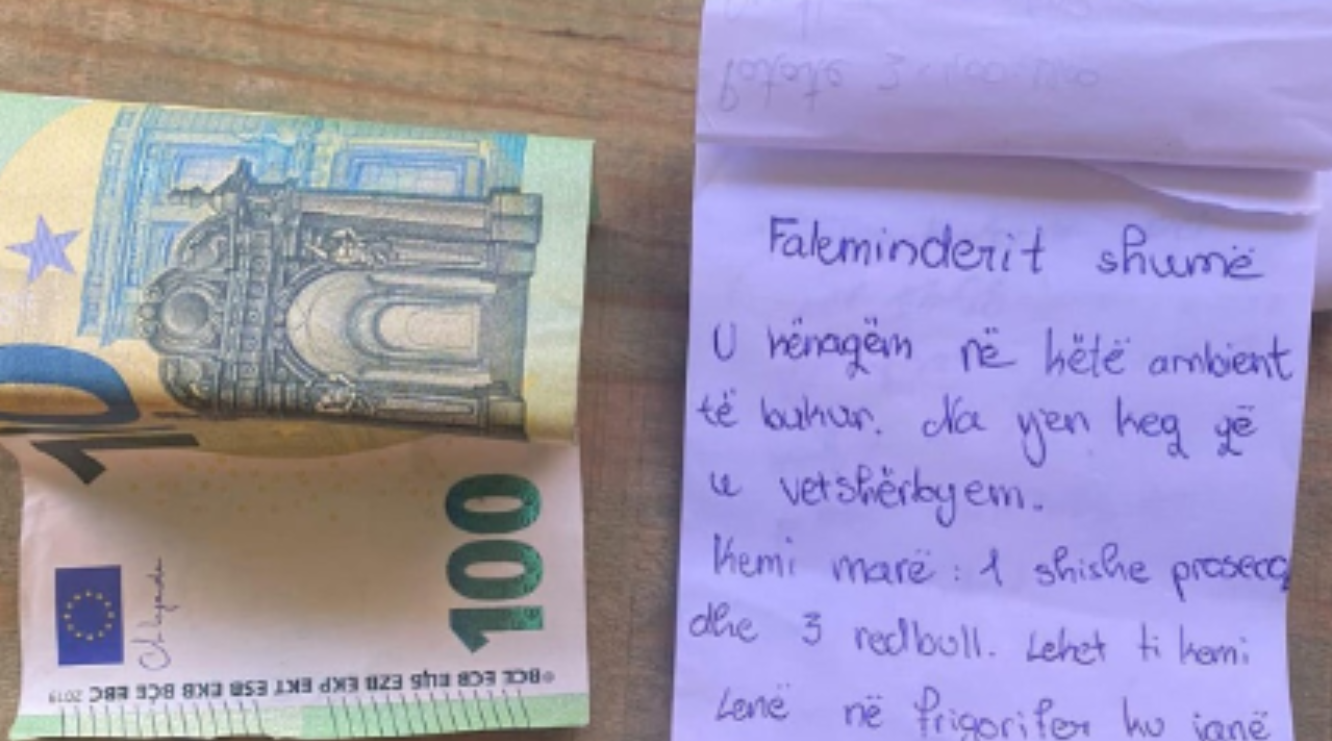 10
100
©BCE ECB ЕЦБ EZB EKP EKT ESB EKB BĊE EBC 2019
Faleminderit shumë
U kënaqëm në këtë ambient
të bukur. Na vjen keq që
u vetshërbyem.
Kemi marë : 1 shishe proseco
dhe 3 redbull. Leket ti kemi
Lenë në frigorifer ku janë